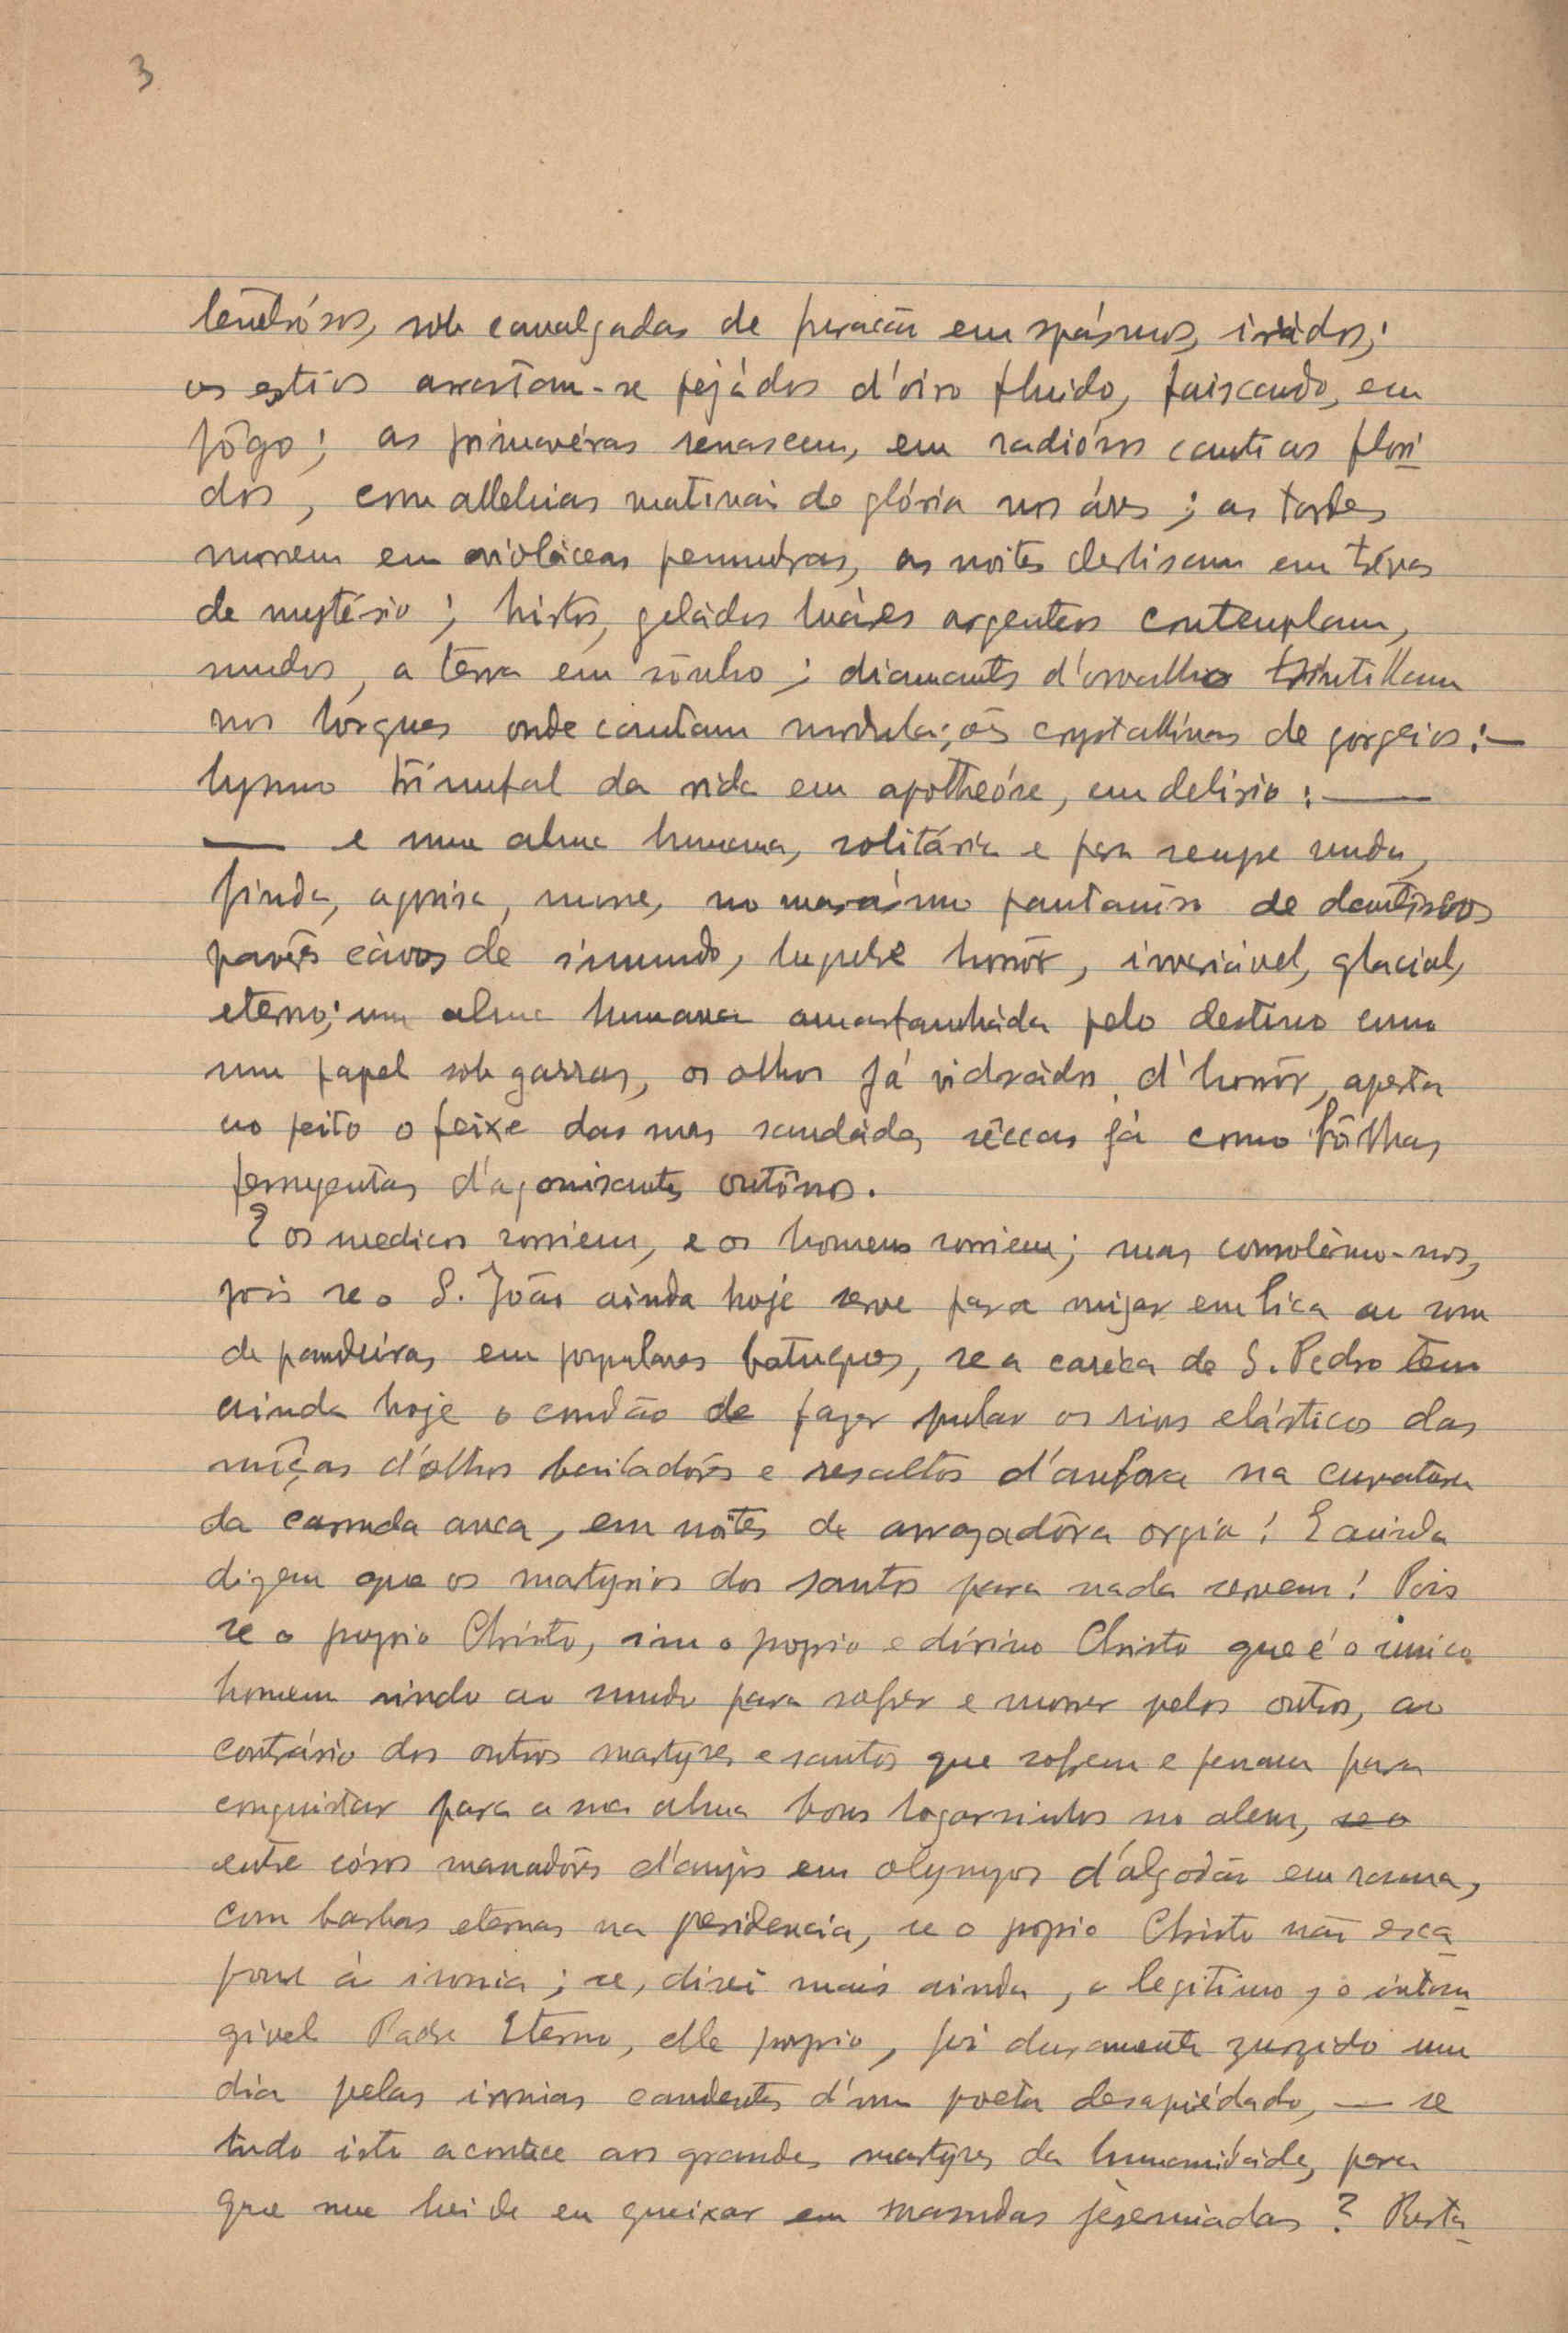 3
tenebrósos, sob cavalgadas de furacão em spásmos, irádos;
os estios arrastam-se pejádos d'oiro fluido, faiscando, em
fôgo; as primavéras renascem, em radiósos canticos flori-
dos, com alleluias matinais de glória nos áres; as tardes
morrem em violáceas penumbras, as noites deslisam em trévas
de mystério; hirtos, geládos luáres argenteos contemplam,
mudos, a terra em sônho; diamantes d'orvalho scintillam
nos bósques onde cantam modulações crystallinas de gorgeios:—
hymno triumfal da vida em apotheóse, em delirio: —
— e uma alma humana, solitária e para sempre muda,
finda, agonisa, morre, no marásmo pantanôso de dantêscos
pavôres cávos de immundo, lugubre horrôr, invariável, glacial,
eterno; uma alma humana amarfanháda pelo destino como
um papel sob garras, os olhos já vidrádos d'horrôr, aperta
ao peito o feixe das suas saudádes sêccas já como fôlhas
ferrugentas d'agonisantes outônos.
E os medicos sorriem, e os homens sorriem; mas consolêmo-nos,
pois se o S. João ainda hoje serve para mijar em bica ao som
de pandeiras em populares batuques, se a caréca de S. Pedro tem
ainda hoje o condão de fazer pular os rins elásticos das
môças d'olhos bailadôres e resaltos d'anfora na curvatura
da carnuda anca, em noites de arrazadôra orgia! E ainda
dizem que os martyrios dos santos para nada servem! Pois
se o proprio Christo, sim o proprio e divino Christo que é o unico
homem vindo ao mundo para sofrer e morrer pelos outros, ao
contrário dos outros martyres e santos que sofrem e penam para
conquistar para a sua alma bons logarsinhos no alem, se o
entre córos manadôres d'anjos em olympos d'algodão em rama,
com barbas eternas na presidencia, se o proprio Christo não esca-
pou á ironia; se, direi mais ainda, o legitimo, o intan-
givel Padre Eterno, elle proprio, foi duramente zurzido um
dia pelas ironias candentes d'um poeta desapiédado, — se
tudo isto acontece aos grandes martyres da humanidáde, para
que me hei de eu queixar em massudas jeremiadas? Resta-